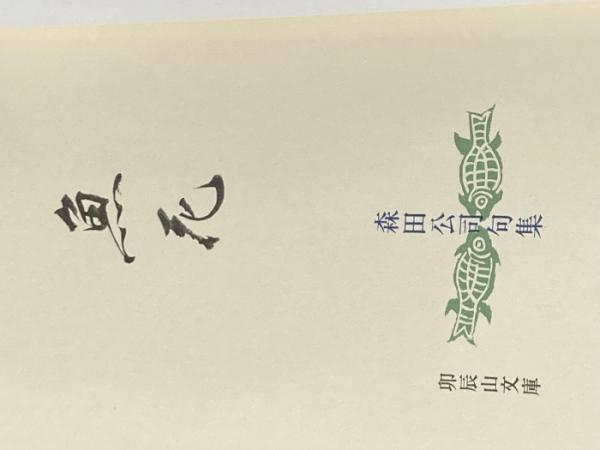 魚
森田公司句集
卯辰山文庫